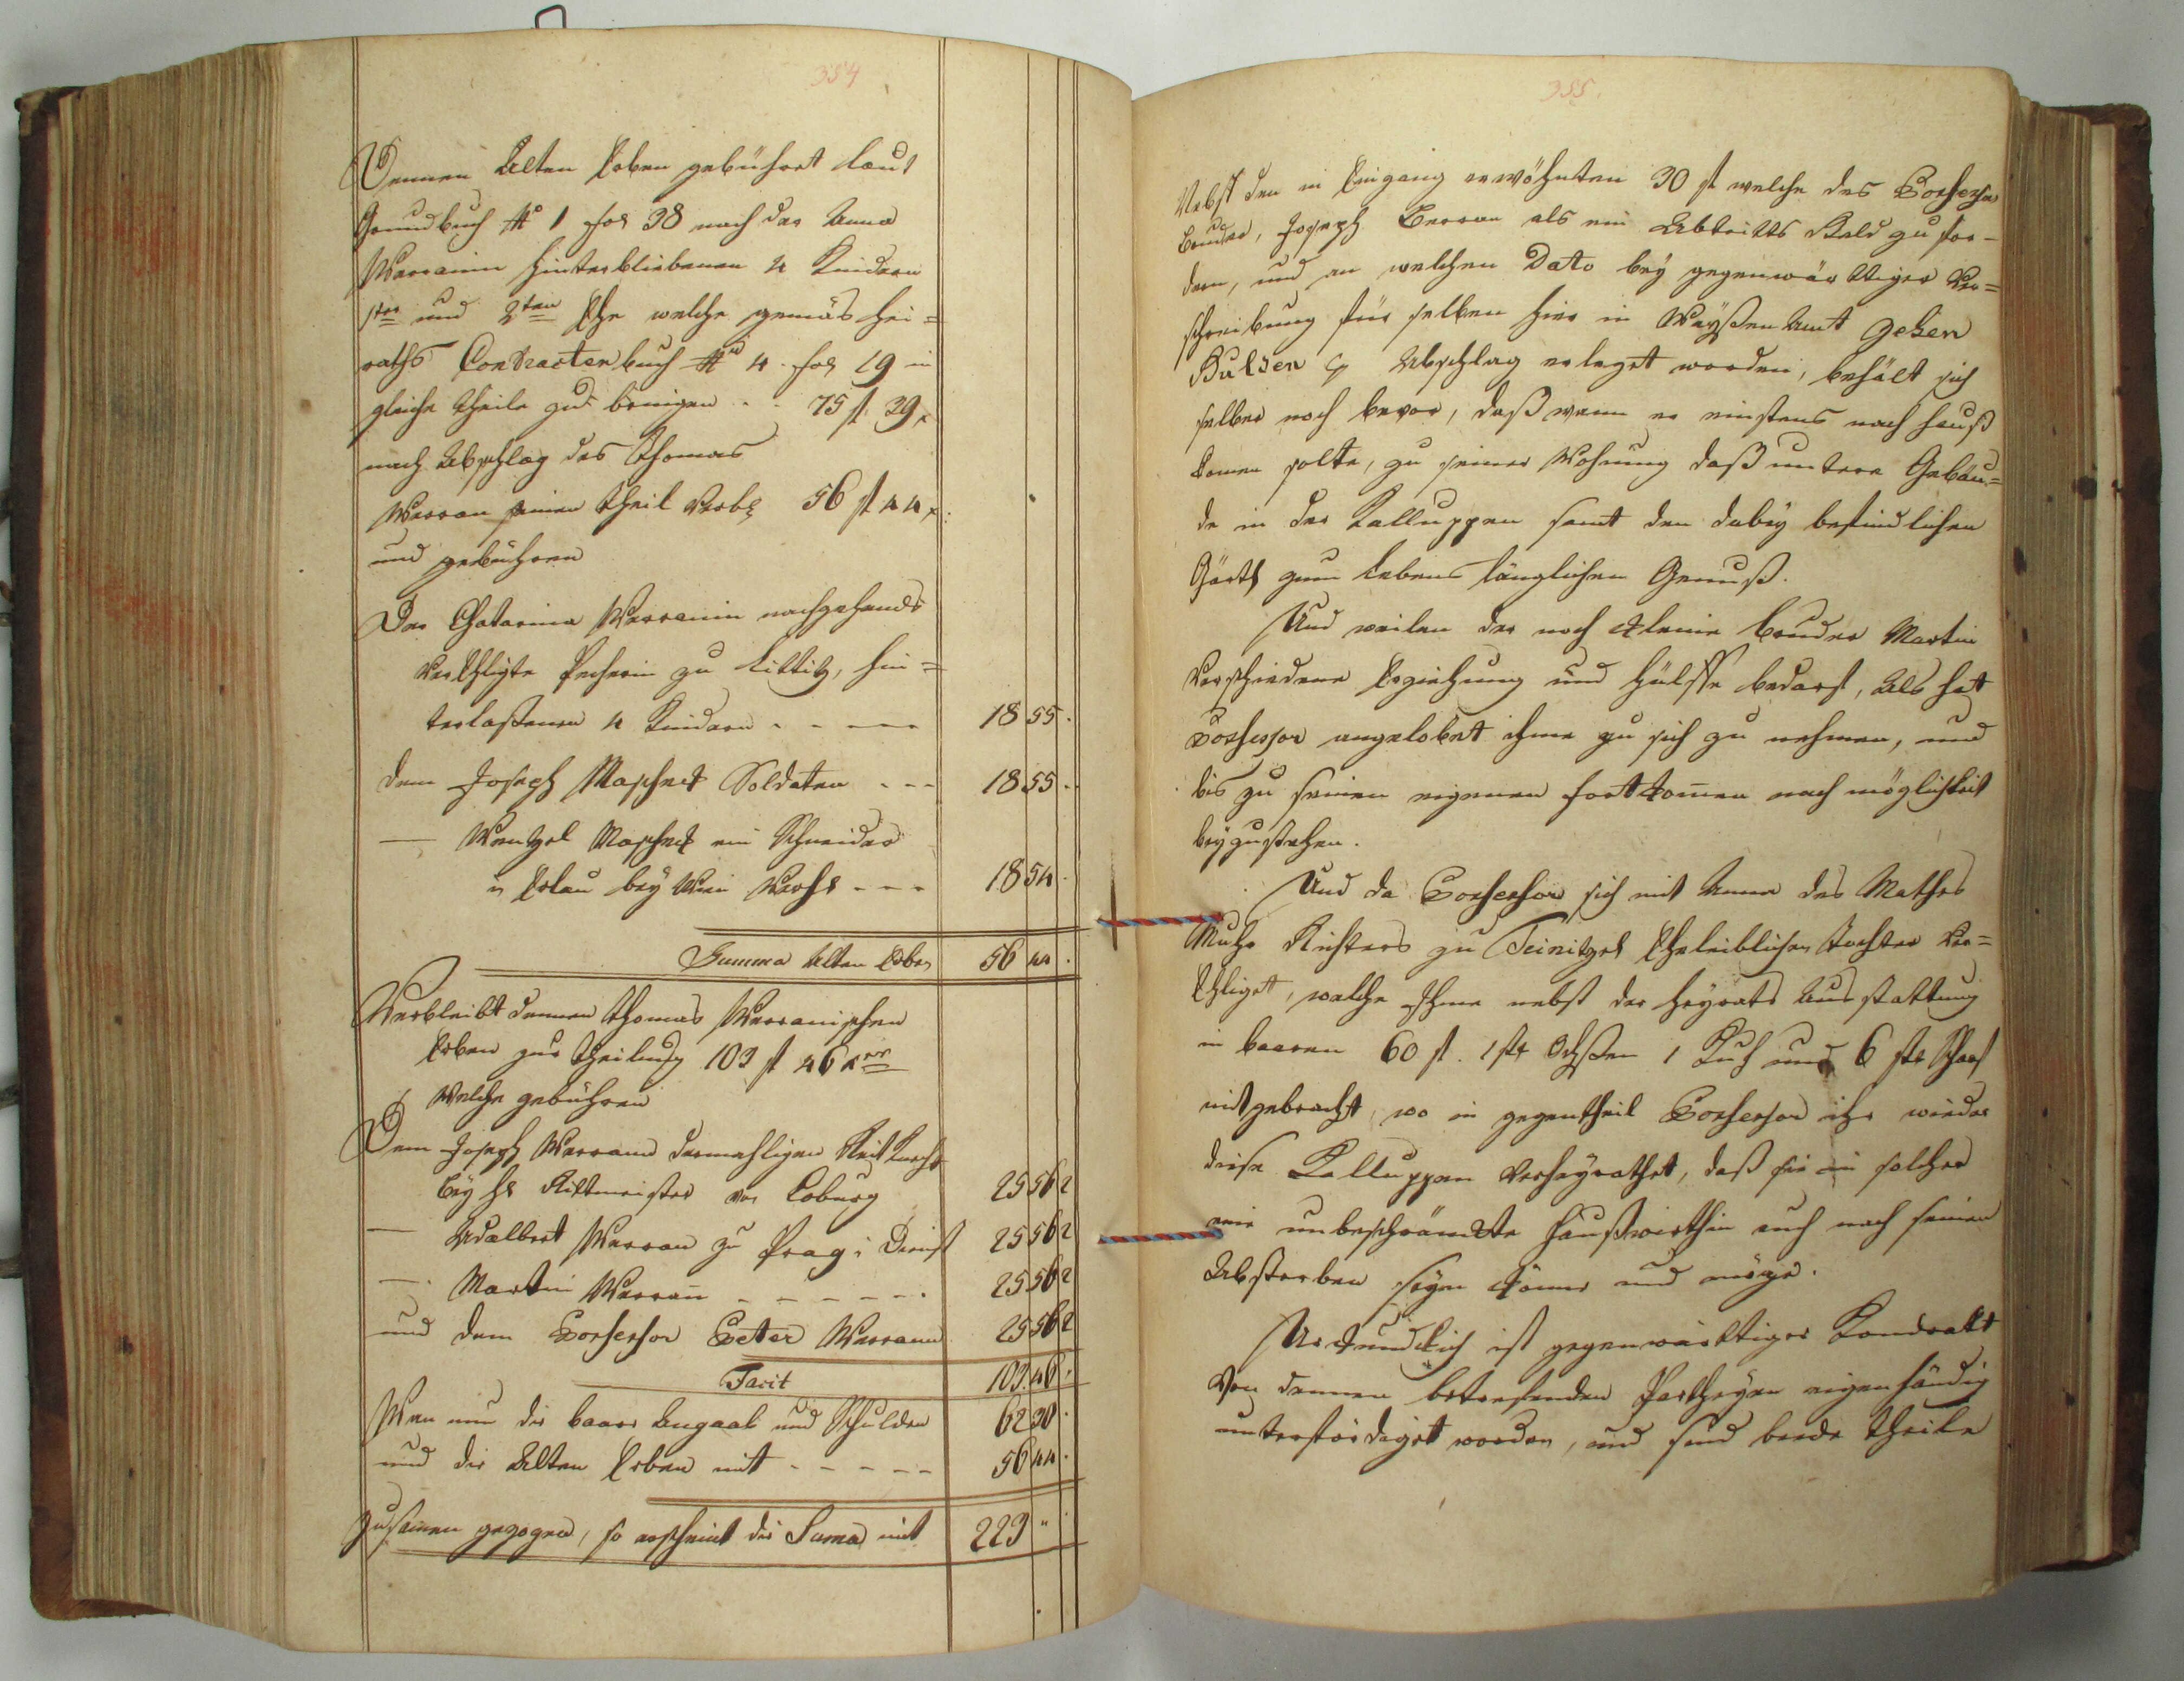 354
Dennen Alten Erben gebührt laut
Grundbuch No 1 fol 38 nach der Anna
Warranin hinterbliebenen 4 Kindern
1ter und 2ten Ehe welche gemäs Hei=
raths Contracten buch No 4. fol 19 in
gleiche Theile zu bringen . . 75 f 39 x
nach Abschlag des Thomas
Warran seinen Theil Verbl 56 f 44 x:
und gebühren
Der Chatarina Warranin nachgehends
Verehligte Pecherin zu Littitz, hin=
terlaßenen 4 Kindern - - - 18 55.
dem Joseph Maschek Soldaten - - - 18 55.
— Wentzel Maschek ein Schneider
in Erlau bey Wien - - - 18 54.
Summa Alten Erben 56 44.
Verbleibt dennen Thomas Warranischen
Erben zur Theilung 103 f 46 xer
Welche gebühren
Dem Joseph Warrann dermahligen Reit Knecht
bey H: Rittmeister von Coburg 25 56 2
— Adalbert Warran zu Prag i Dienst 25 56 2
— Martin Warran̄ - - - - - - 25 56 2
und dem Possessor Peter Warrann 25 56 2
Facit 103. 46.
Wen nun die baare Angaab und Schulden 62 30.
und die Alten Erben mit - - - - - 56 44.
zusam̄en gezogen, so erscheint die Suma mit 223 "
355.
Nebst den in Eingang erwöhnten 30 f welche des Possessor
Bruder, Joseph Berran als ein Abtritts Geld zu for-
dern, und an welchen Dato bey gegenwärttiger Ver=
schreibung für selben hier in Waysen Amt Zehen
Gulden in Abschlag erleget worden, behält sich
selber noch bevor, daß wann er einstens nach Hauß
komen solte, zu seiner Wohnung daß untere Gebäu=
de in der Kalluppen samt den dabey befindlichen
Gärtl zum lebens länglichen Genuß.
Und weilen der noch kleine Bruder Martin
Verschiedene Erziehung und Hülffe bedarf, Als hat
Possessor angelobet ihme zu sich zu nehmen, und
bis zu seinen eigenen fortkom̄en nach möglichkeit
beyzustehen.
Und da Possessor sich mit Anna des Mathes
Muhr Richters zu Teinitzel Eheleiblichen Tochter Ver=
Ehliget, welche Ihme nebst der Heyrats Ausstattung
in baaren 60 f. 1 stk Ochsen 1 Kuh und 6 stk Schaf
mitgebracht, wo in gegentheil Possessor ihr wieder
diese Kalluppen Verheyrathet, daß sie in solcher
eine unbeschränckte Haußwirthin auch nach seinen
Absterben seyn könne und möge.
Urkundlich ist gegenwärttiger Kondrakt
Von dennen betrefenden Partheyen eigenhändig
unterfördiget worden, und sind beede Theile